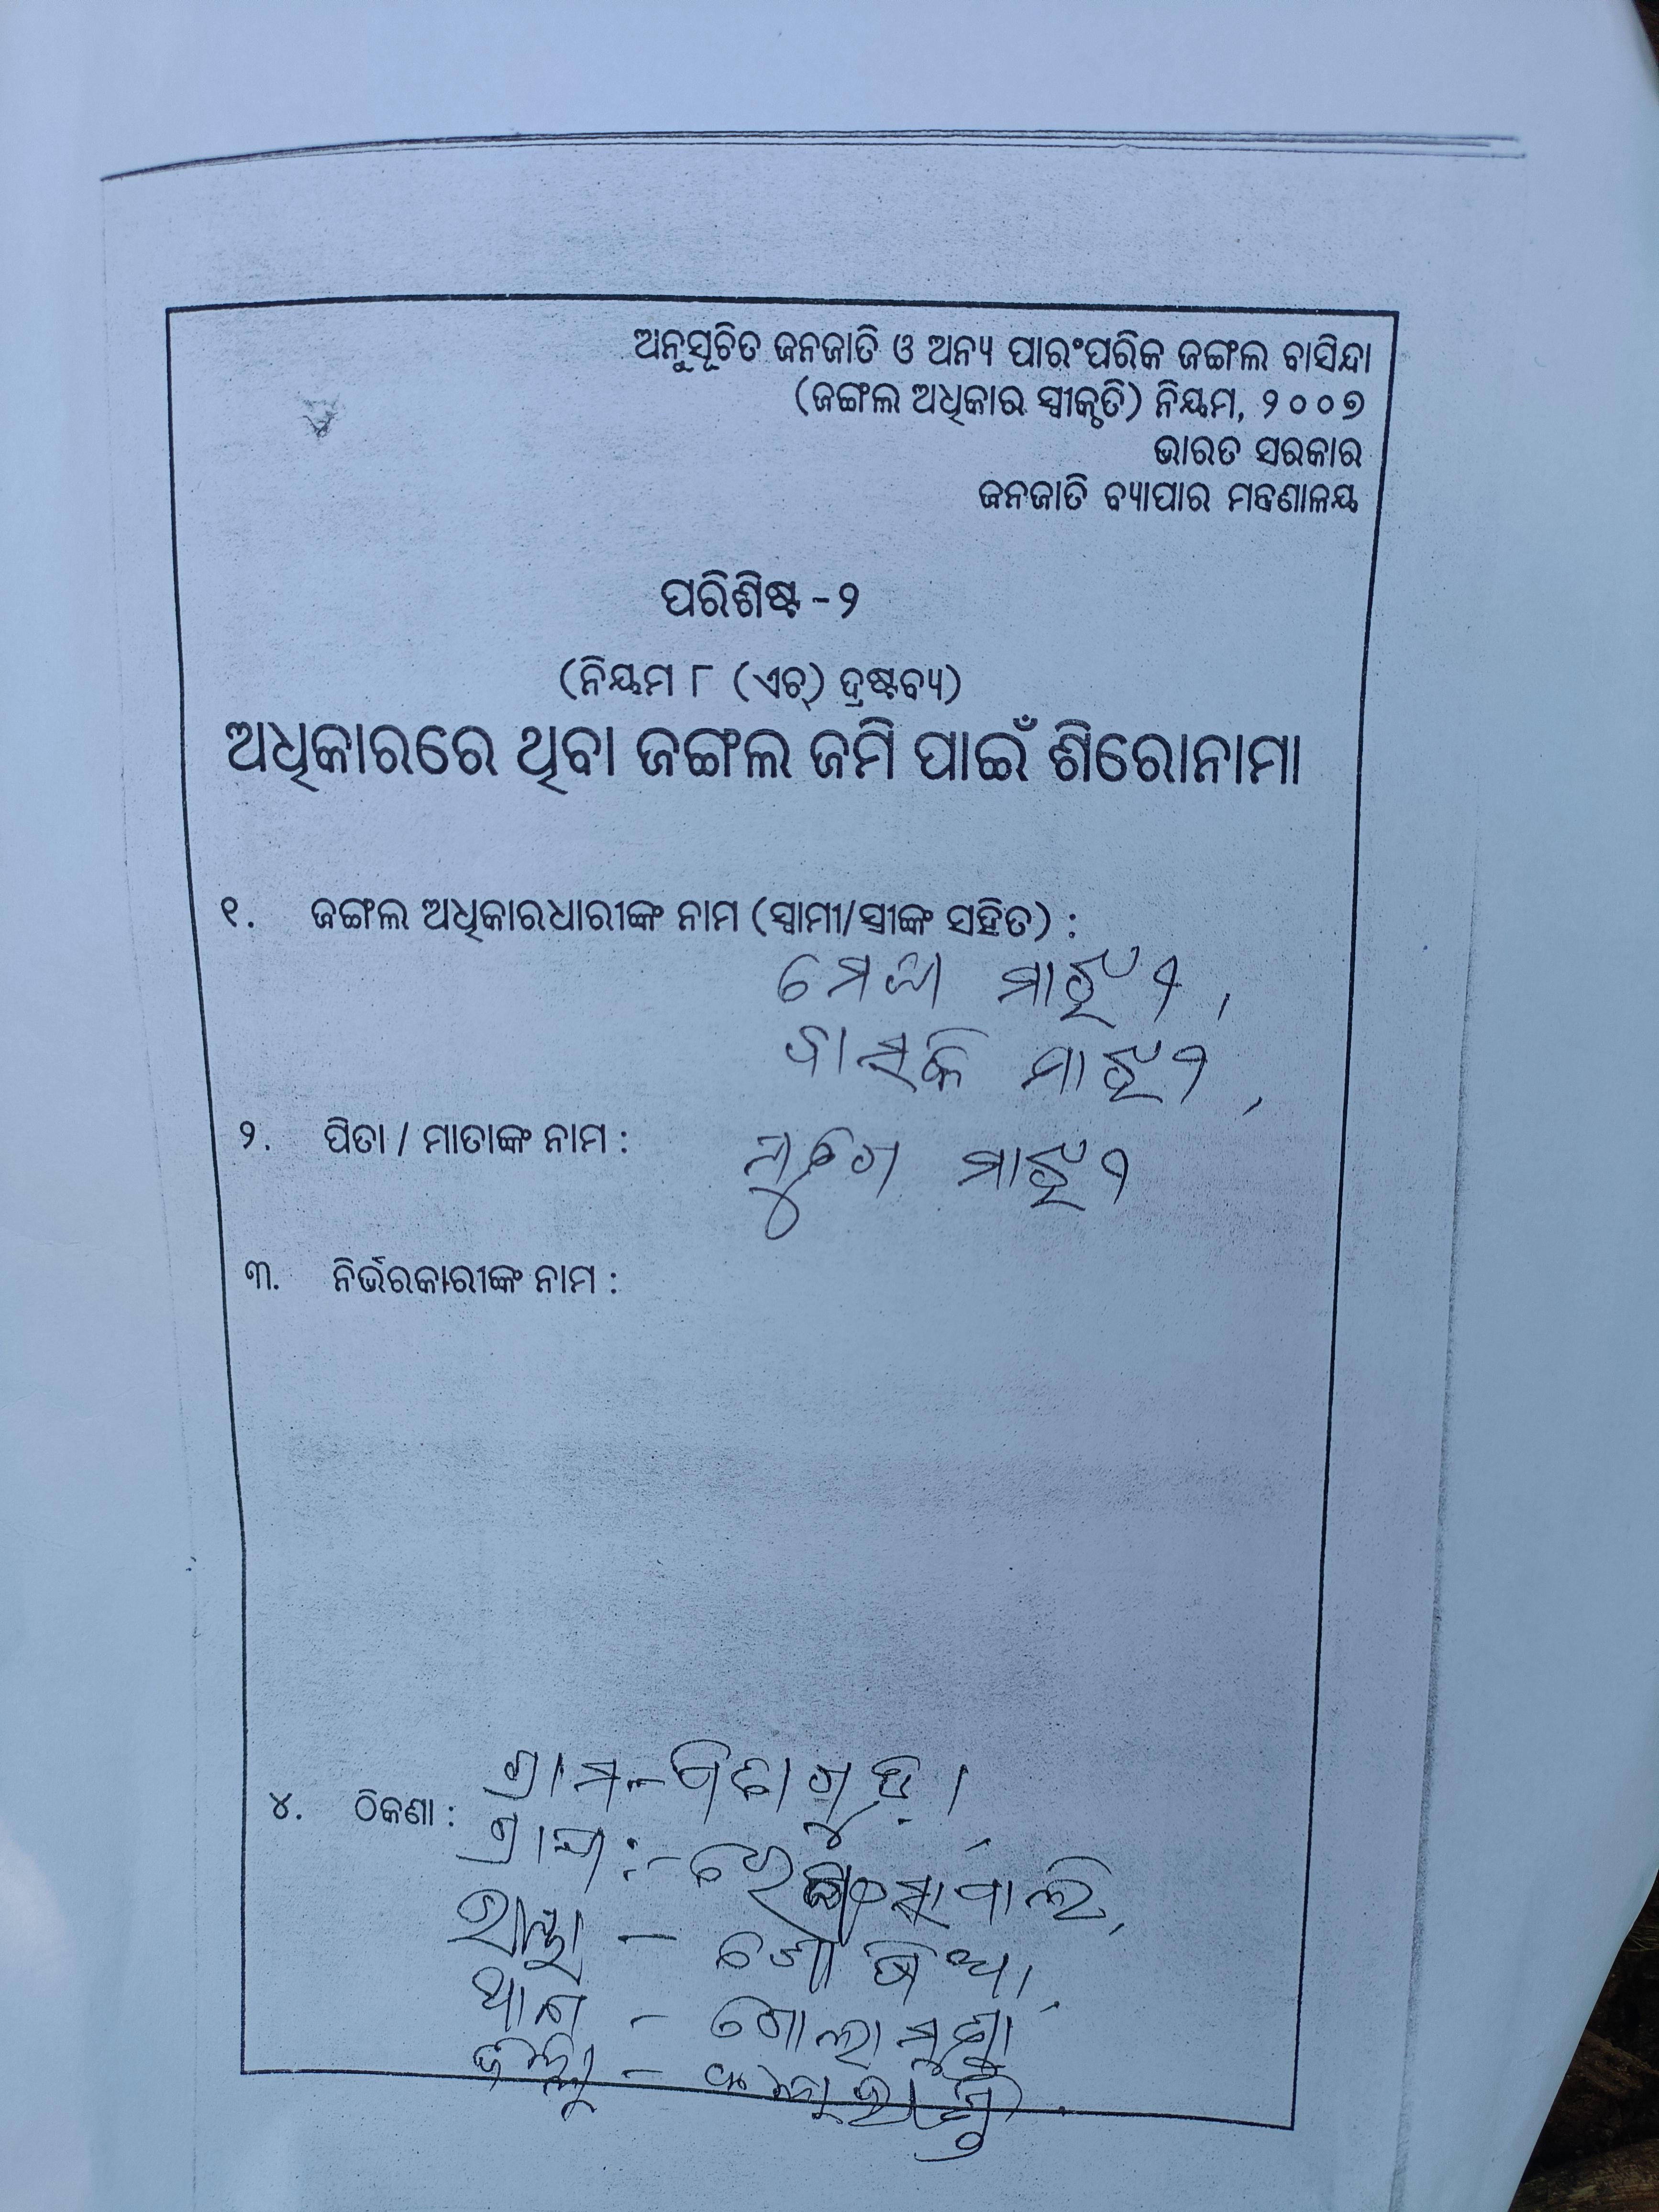 ଅନୁସୂଚିତ ଜନଜାତି ଓ ଅନ୍ୟ ପାରଂପରିକ ଜଙ୍ଗଲ ବାସିନ୍ଦା
(ଜଙ୍ଗଲ ଅଧିକାର ସ୍ୱୀକୃତି) ନିୟମ, ୨୦୦୭
ଭାରତ ସରକାର
ଜନଜାତି ବ୍ୟାପାର ମନ୍ତ୍ରଣାଳୟ
ପରିଶିଷ୍ଟ - ୨
(ନିୟମ ୮ (ଏଚ୍) ଦ୍ରଷ୍ଟବ୍ୟ)
ଅଧିକାରରେ ଥିବା ଜଙ୍ଗଲ ଜମି ପାଇଁ ଶିରୋନାମା
୧. ଜଙ୍ଗଲ ଅଧିକାରଧାରୀଙ୍କ ନାମ (ସ୍ୱାମୀ/ସ୍ତ୍ରୀଙ୍କ ସହିତ) :
ମେଘା ମାଝୀ,
ମାଝୀ,
୨. ପିତା / ମାତାଙ୍କ ନାମ : ମାଝୀ
୩. ନିର୍ଭରକାରୀଙ୍କ ନାମ :
ଗ୍ରାମ -
୪. ଠିକଣା :
ଗ୍ରାପ :-
-
ଥାନା - ଗୋଲାମୁଣ୍ଡା
ଜିଲ୍ଲା - କଳାହାଣ୍ଡି